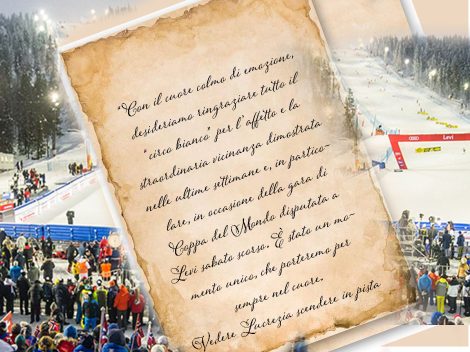 "Con il cuore colmo di emozione,
desideriamo ringraziare tutto il
"circo bianco" per l'affetto e la
straordinaria vicinanza dimostrata
nelle ultime settimane e, in partico-
lare, in occasione della gara di
Coppa del Mondo disputata a
Levi sabato scorso. È stato un mo-
mento unico, che porteremo per
sempre nel cuore.
Vedere Lucrezia scendere in pista
Levi